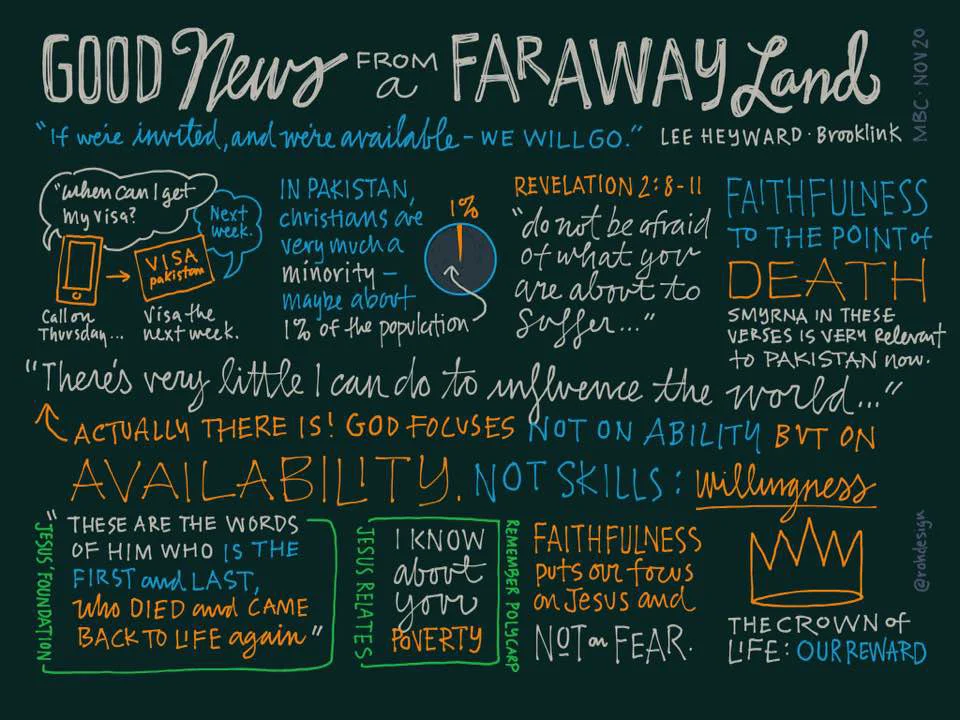 GOOD News FROM a FARAWAY Land
MBC · NOV 20
"If we're invited, and we're available – WE WILL GO." LEE HEYWARD · Brooklink
"When can I get
my visa?
Next
week.
VISA
pakistan
Call on
Thursday...
Visa the
next week.
IN PAKISTAN,
christians are
very much a
minority –
maybe about
1% of the population
1%
REVELATION 2:8-11
"do not be afraid
of what you
are about to
suffer..."
FAITHFULNESS
TO THE POINT of
DEATH
SMYRNA IN THESE
VERSES IS VERY Relevant
to PAKISTAN now.
"There's very little I can do to influence the world..."
ACTUALLY THERE IS! GOD FOCUSES NOT ON ABILITY BUT ON
AVAILABILITY. NOT SKILLS: willingness
JESUS' FOUNDATION
"THESE ARE THE WORDS
OF HIM WHO IS THE
FIRST and LAST,
who DIED and CAME
BACK TO LIFE again"
JESUS RELATES
I KNOW
about
your
POVERTY
REMEMBER POLYCARP
FAITHFULNESS
puts our focus
on Jesus and
NOT on FEAR.
THE CROWN of
LIFE: OUR REWARD
@rohdesign